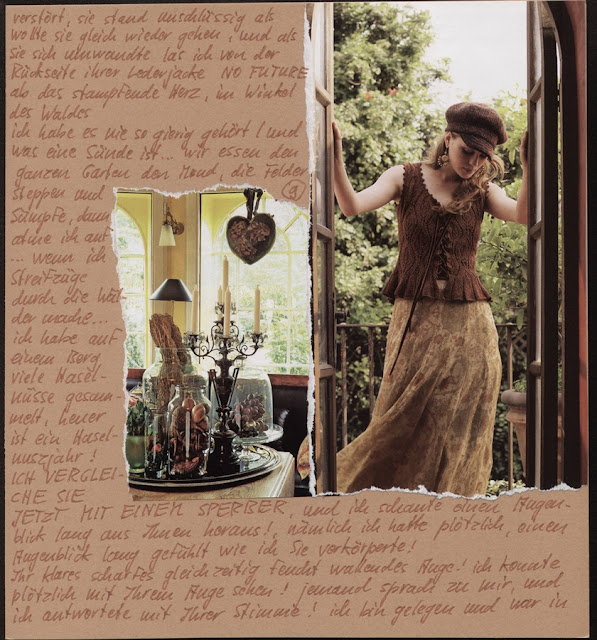 verstört, sie stand unschlüssig als
wollte sie gleich wieder gehen, und als
sie sich umwandte las ich von der
Rückseite ihrer Lederjacke NO FUTURE
ab das stampfende Herz, im Winkel
des Waldes
ich habe es nie so gierig gehört! und
was eine Sünde ist... wir essen den
ganzen Garten den Mond, die Felder
Steppen und
Sümpfe, dann
atme ich auf
... wenn ich
Streifzüge
durch die Wäl-
der mache...
ich habe auf
einem Berg
viele Hasel-
nüsse gesam-
melt, heuer
ist ein Hasel-
nuszjahr!
ICH VERGLEI-
CHE SIE
JETZT MIT EINEM SPERBER, und ich schaute einen Augen-
blick lang aus Ihnen heraus!, nämlich ich hatte plötzlich, einen
Augenblick lang gefühlt wie ich Sie verkörperte!
Ihr klares scharfes gleichzeitig feucht wallendes Auge! ich konnte
plötzlich mit Ihrem Auge sehen! jemand sprach zu mir, und
ich antwortete mit Ihrer Stimme! ich bin gelegen und war in